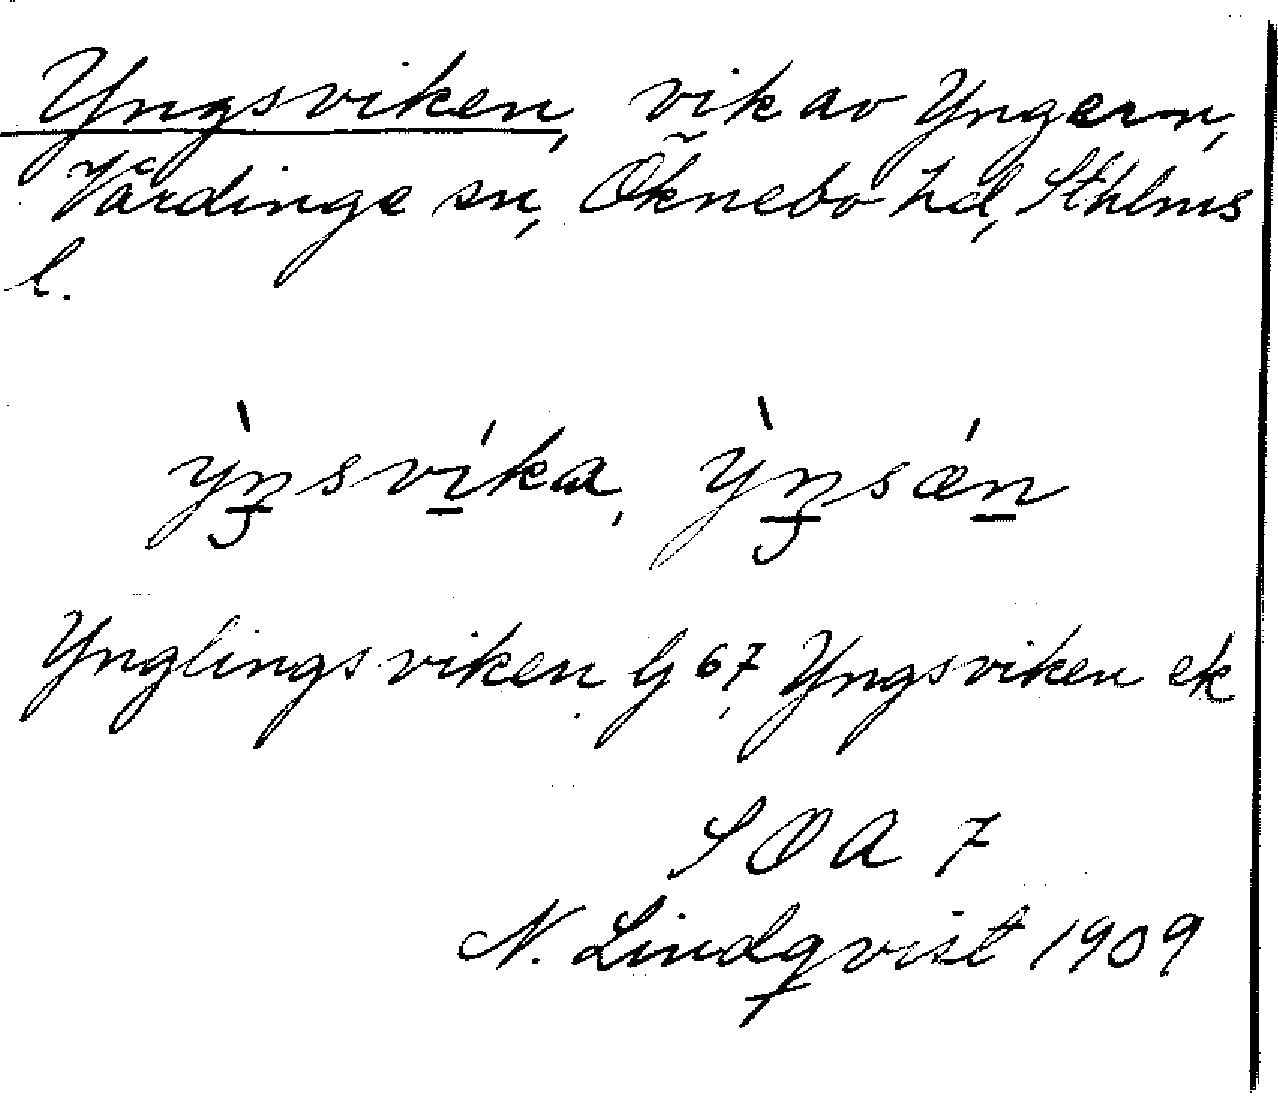 Yngsviken, vik av Yngern,
Vårdinge sn, Öknebo hd, Sthlms
l.
ỳŋsvíka, ỳŋsǽn
Ynglingsviken G 67, Yngsviken ek
SOA 7
N. Lindqvist 1909